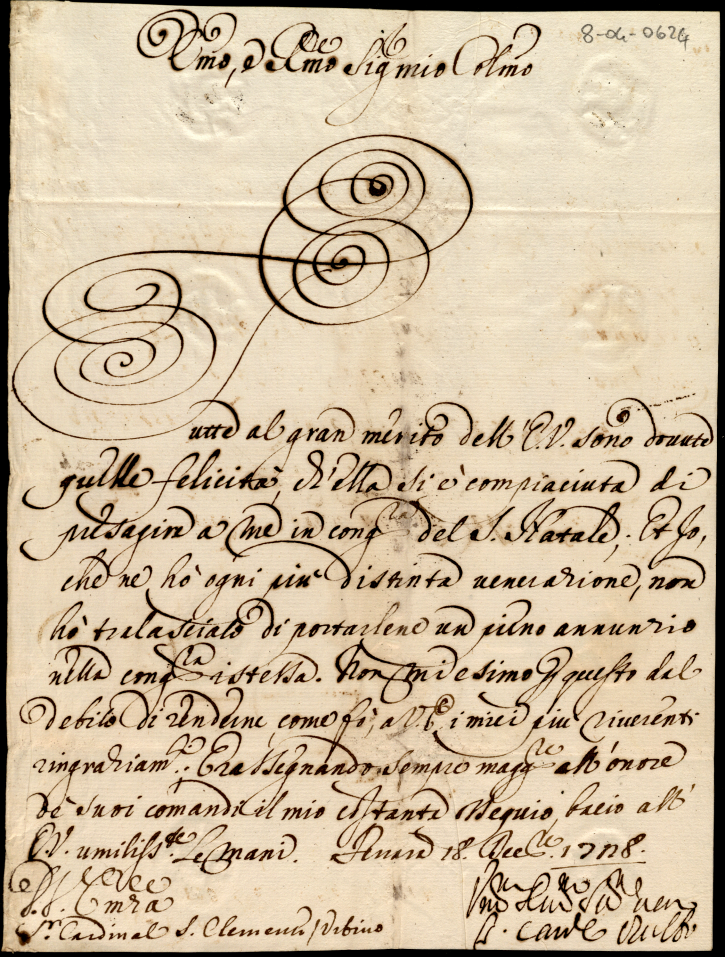 8-04-0624
Emo, e Rmo Sig mio Colmo
utte al gran merito dell' E.V. sono dovute
quelle felicità, ch'ella si è compiaciuta di
presagire a me in congra del S. Natale; Et Io,
che ne hò ogni più distinta venerazione, non
hò tralasciato di portarlene un pieno annunzio
nella congra istessa. Non mi esimo questo dal
debito di renderne, come fò, a V.E. i miei più riverenti
ringraziamti; E rassegnando sempre maggre all' onore
de suoi comandi il mio costante ossequio, bacio all'
E.V. umilisste le mani. 18. Decre 1728.
Sr Cardinal S. Clemente / Urbino
Card Ruffo